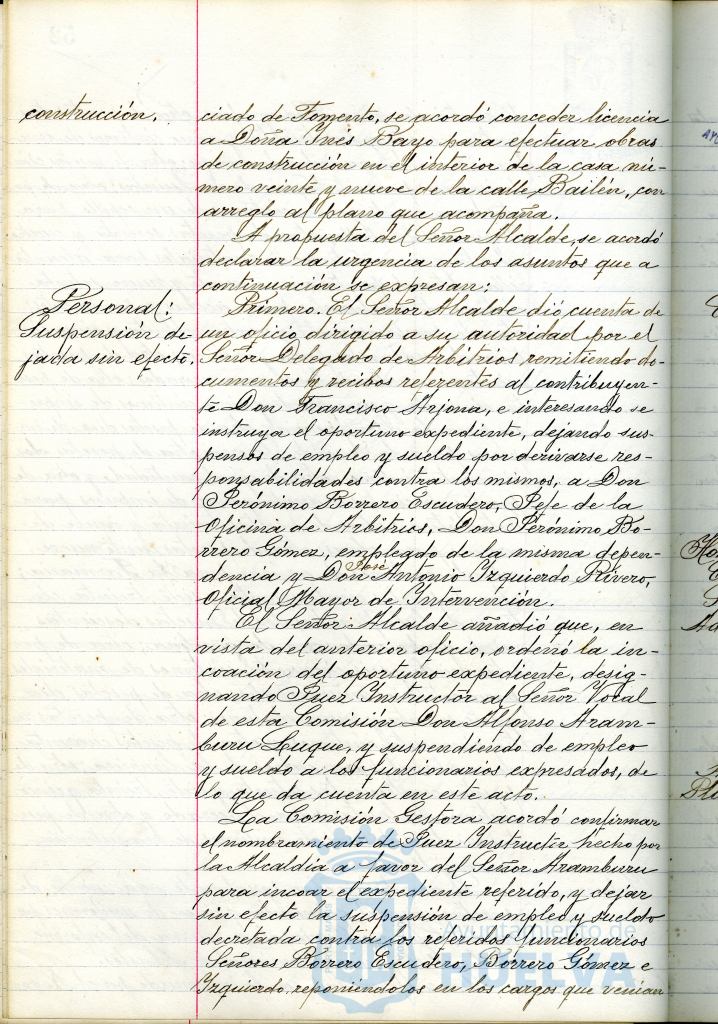 construcción.
ciado de Fomento, se acordó conceder licencia
a Doña Inés Bayo para efectuar obras
de construcción en el interior de la casa nú-
mero veinte y nueve de la calle Bailén, con
arreglo al plano que acompaña.
A propuesta del Señor Alcalde, se acordó
declarar la urgencia de los asuntos que a
continuación se expresan:
Personal:
Suspensión de-
jada sin efecto.
Primero. El Señor Alcalde dió cuenta de
un oficio dirigido a su autoridad por el
Señor Delegado de Arbitrios remitiendo do-
cumentos y recibos referentes al contribuyen-
te Don Francisco Arjona, e interesando se
instruya el oportuno expediente, dejando sus-
pensos de empleo y sueldo por derivarse res-
ponsabilidades contra los mismos, a Don
Jerónimo Borrero Escudero, Jefe de la
Oficina de Arbitrios, Don Jerónimo Bo-
rrero Gómez, emplegado de la misma depen-
dencia y Don José Antonio Izquierdo Rivero,
Oficial Mayor de Intervención.
El Señor Alcalde añadió que, en
vista del anterior oficio, ordenó la in-
coación del oportuno expediente, desig-
nando Juez Instructor al Señor Vocal
de esta Comisión Don Alfonso Aram-
buru Luque, y suspendiendo de empleo
y sueldo a los funcionarios expresados, de
lo que da cuenta en este acto.
La Comisión Gestora acordó confirmar
el nombramiento de Juez Instructor hecho por
la Alcaldía a favor del Señor Aramburu
para incoar el expediente referido, y dejar
sin efecto la suspensión de empleo y sueldo
decretada contra los referidos funcionarios
Señores Borrero Escudero, Borrero Gómez e
Izquierdo, reponiéndolos en los cargos que venían
Ayuntamiento de
HUELVA